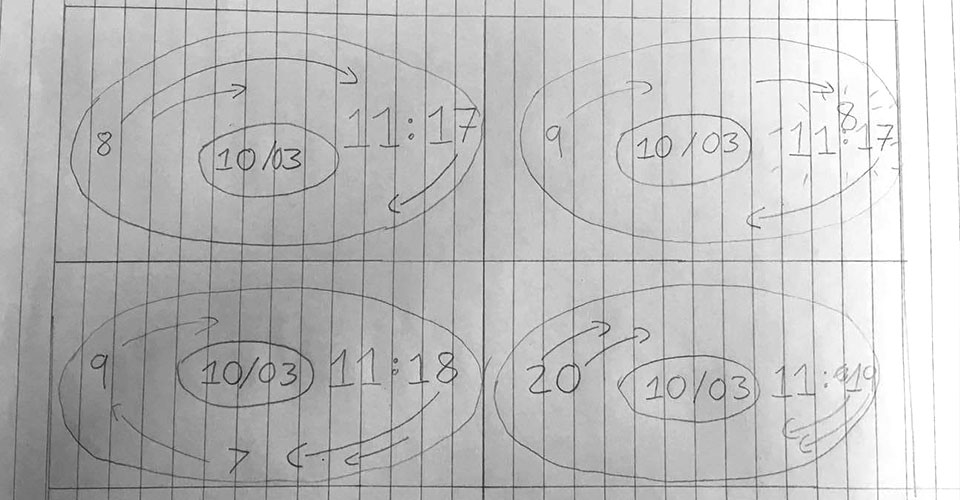 8 10/03 11:17
9 10/03 11:17
8
9 10/03 11:18
7
20 10/03 11:19